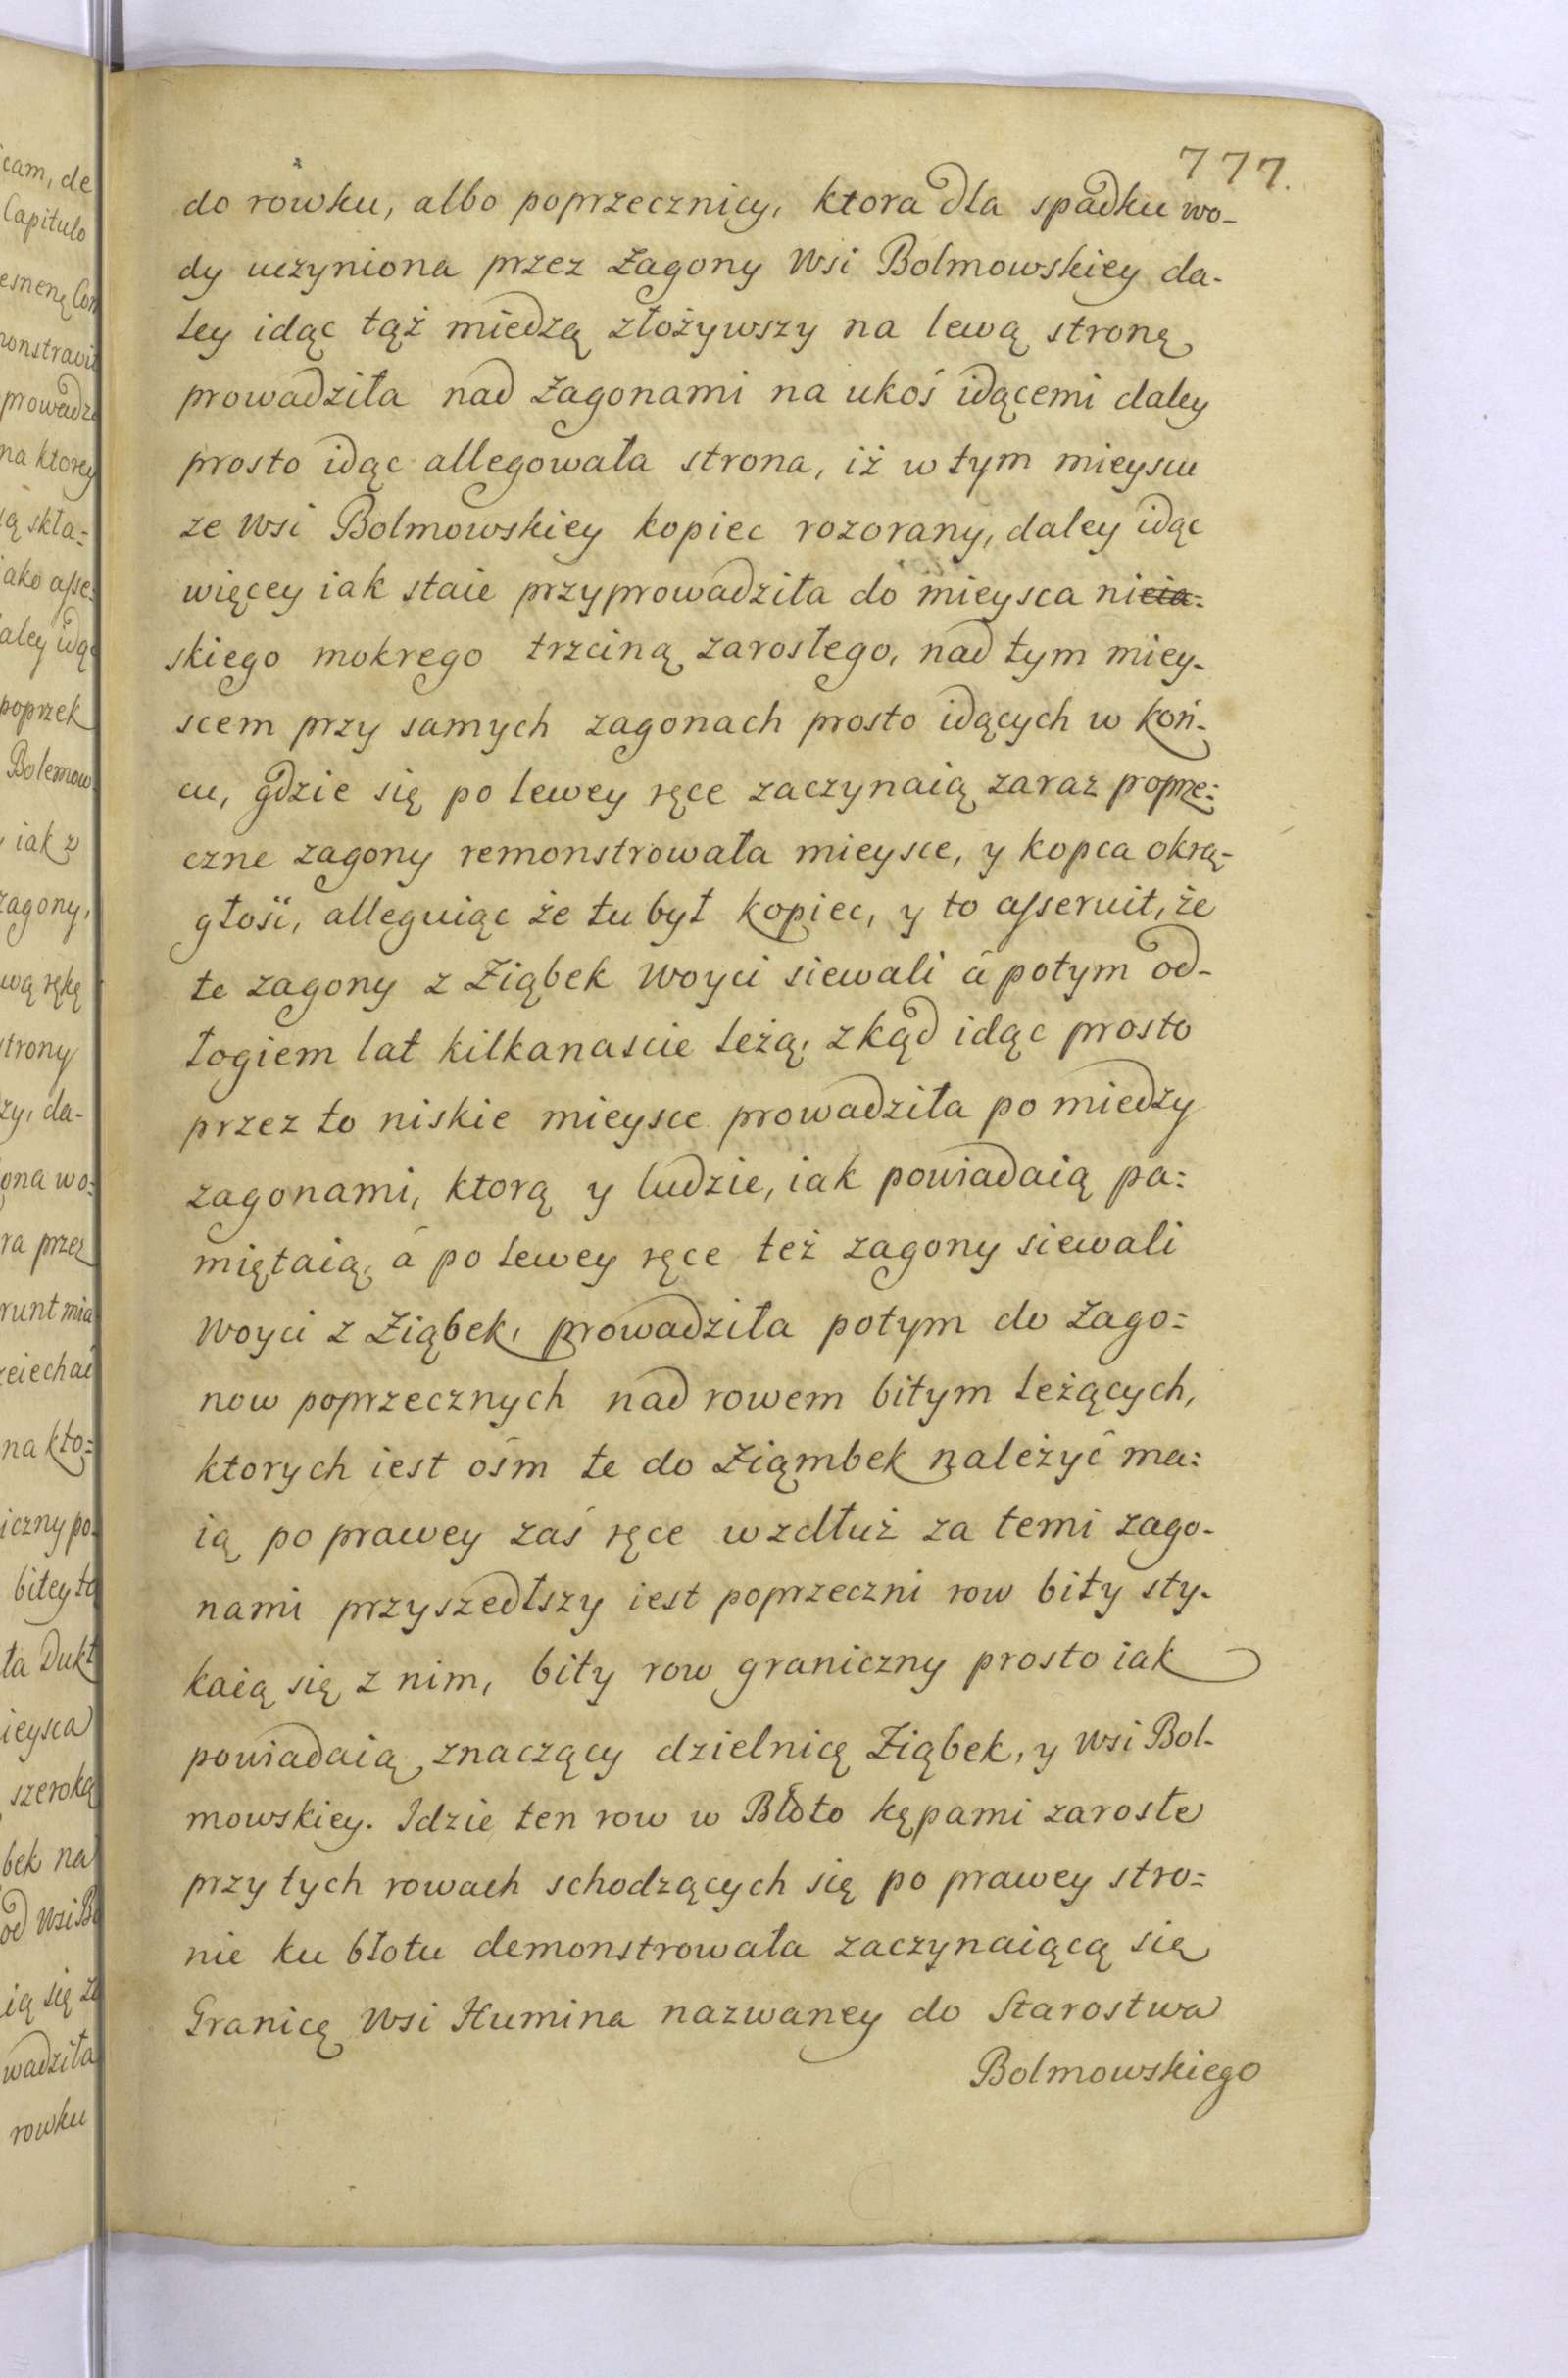 777.
do rowku, albo poprzecznicy, ktora dla spadku wo-
dy uczyniona przez Zagony Wsi Bolmowskiey da-
ley idąc tąż miedzą złożywszy na lewą stronę
prowadziła nad Zagonami na ukoś idącemi daley
prosto idąc allegowała strona, iż w tym mieyscu
ze Wsi Bolmowskiey kopiec rozorany, daley idąc
więcey iak staie przyprowadziła do mieysca nicia-
skiego mokrego trzciną zarosłego, nad tym miey-
scem przy samych zagonach prosto idących w koń-
cu, gdzie się po lewey ręce zaczynaią zaraz poprze:
czne zagony remonstrowała mieysce, y kopca okrą-
głośi, alleguiąc że tu był kopiec, y to asseruit, że
te zagony z Ziąbek Woyci siewali á potym od-
łogiem lat kilkanascie leżą, zkąd idąc prosto
przez to niskie mieysce prowadziła po miedzy
zagonami, ktorą y ludzie, iak powiadaią pa:
miętaią, á po lewey ręce też zagony siewali
Woyci z Ziąbek, prowadziła potym do Zago:
now poprzecznych nad rowem bitym leżących,
ktorych iest ośm te do Ziąmbek należyć ma:
ią po prawey zaś ręce wzdłuż za temi zago-
nami przyszedłszy iest poprzeczni row bity sty-
kaią się z nim, bity row graniczny prosto iak
powiadaią, znaczący dzielnicę Ziąbek, y Wsi Bol-
mowskiey. Idzie ten row w Błoto kępami zarosłe
przy tych rowach schodzących się po prawey stro:
nie ku błotu demonstrowała zaczynaiącą się
Granicę Wsi Humina nazwaney do Starostwa
Bolmowskiego